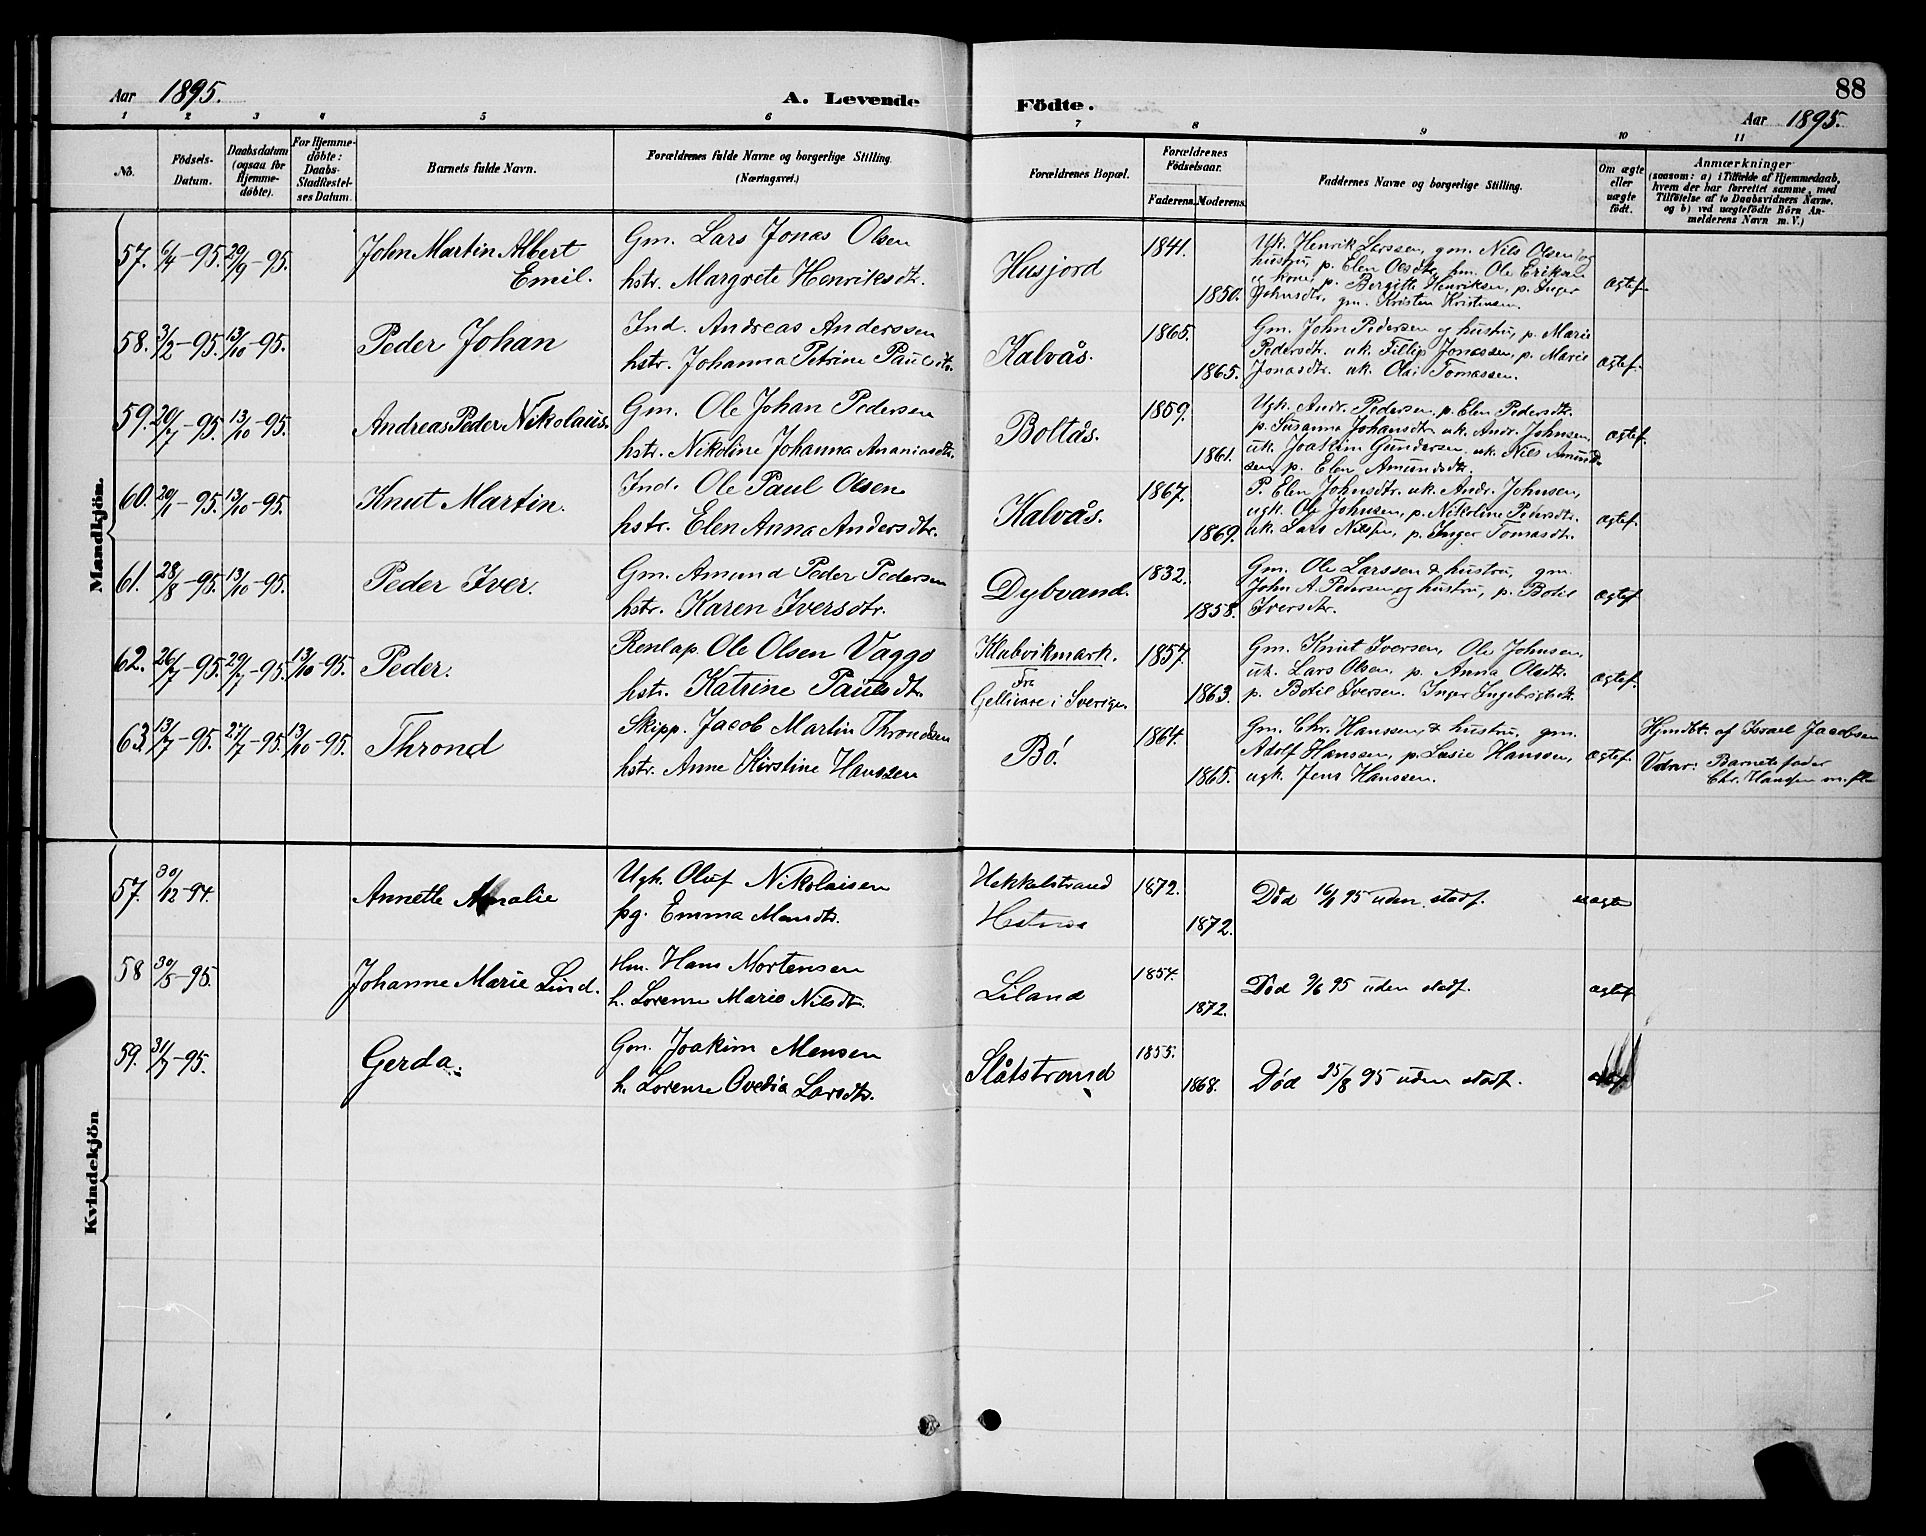 Aar 1895.
A. Levende
Födte.
88
Aar 1895.
1 2 3 4 5 6 7 8 9 10 11
No.
Födsels-
Datum.
Daabsdatum
(ogsaa for
Hjemme-
döbte).
For Hjemme-
döbte:
Daabs-
Stadfæstel-
ses Datum.
Barnets fulde Navn.
Forældrenes fulde Navne og borgerlige Stilling.
(Næringsvei.)
Forældrenes Bopæl.
Forældrenes
Födselsaar.
Faderens. Moderens.
Faddernes Navne og borgerlige Stilling.
Om ægte
eller
uægte
födt.
Anmærkninger
(saasom: a) i Tilfælde af Hjemmedaab,
hvem der har forrettet samme, med
Tilföielse af to Daabsvidners Navne.
og b) ved uægtefödte Börn An-
melderens Navn m. V.)
Mandkjön.
57. 6/4-95. 29/9-95.
John Martin Albert
Emil.
Gm. Lars Jonas Olsen
hstr. Margrete Henriksdtr.
Husjord
1841.
1850.
Uk. Henrik Larssen, gm. Nils Olsen og
hustru, p. Elen Olsdtr. hm. Ole Eriksen
u. kone, p. Bergitte Henriksen, p. Inger
Johnsdtr, gm. Kristen Kristensen.
ægtef.
58. 3/2-95. 13/10-95.
Peder Johan
Ind. Andreas Anderssen
hstr. Johanna Petrine Paulsdtr.
Kalvås.
1865.
1865.
Gm. John Pedersen og hustru, p. Marie
Pedersdtr. uk. Fillip Jonassen, p. Marie
Jonasdtr. uk. Olai Tomassen.
ægtef.
59. 20/7-95. 13/10-95.
Andreas Peder Nikolaus.
Gm. Ole Johan Pedersen
hstr. Nikoline Johanna Ananiasdtr.
Boltås.
1859.
1861.
Ugk. Andr. Pedersen, p. Elen Pedersdtr.
p. Susanna Johansdtr. uk. Andr. Johnsen,
uk. Joakim Gundersen, uk. Nils Amund-
sen, p. Elen Amundsdtr.
ægtef.
60. 29/1-95. 13/10-95.
Knut Martin.
Ind. Ole Paul Olsen
hstr. Elen Anna Andersdtr.
Kalvås.
1867.
1869.
P. Elen Johnsdtr. uk. Andr. Johnsen,
ugk. Ole Johnsen, p. Nikoline Pedersdtr.
uk. Lars Nilsen, p. Inger Tomasdtr.
ægtef.
61. 28/8-95. 13/10-95.
Peder Iver.
Gm. Amund Peder Pedersen
hstr. Karen Iversdtr.
Dybvand.
1832.
1858.
Gm. Ole Larssen & hustru, gm.
John A. Pedersen og hustru, p. Botil
Iversdtr.
ægtef.
62. 26/7-95. 29/7-95. 13/10-95.
Peder.
Renlap. Ole Olsen Vaggo
hstr. Katrine Paulsdt.
Klubvikmark.
Fra
Gellivare i Sverige
1857.
1863.
Gm. Knut Iversen, Ole Johnsen,
uk. Lars Olsen, p. Anna Olsdtr.
p. Botil Iversen. Inger Ingebrigtsdtr.
ægtef.
63. 13/7-95. 27/7-95. 13/10-95.
Thrond
Skipp. Jacob Martin Throndsen
hstr. Anne Kirstine Hanssen
Bö.
1864.
1865.
Gm. Chr. Hanssen & hustru, gm.
Adolf Hanssen, p. Lusie Hanssen,
ugk. Jens Hanssen.
ægtef.
Hjmdbt. af Israel Jacobsen
Vidner: Barnets fader
Chr. Hansen m. fl.
Kvindekjön
57. 30/12-94.
Annette Amalie
Ugk. Oluf Nikolaisen
pg. Emma Monsdtr.
Hekkelstrand
1872.
1872.
Död 16/1 95 uden stadf.
uægte
58 30/5-95.
Johanne Marie Lind.
Hm. Hans Mortensen
h. Lorense Marie Nilsdt.
Liland
1854.
1872.
Död 9/6 95 uden stadf.
ægtef.
59. 31/7-95.
Gerda.
Gm. Joakim Monsen
h. Lorense Ovedia Larsdtr.
Slåtstrand
1855.
1868.
Död 25/8 95 uden stadf.